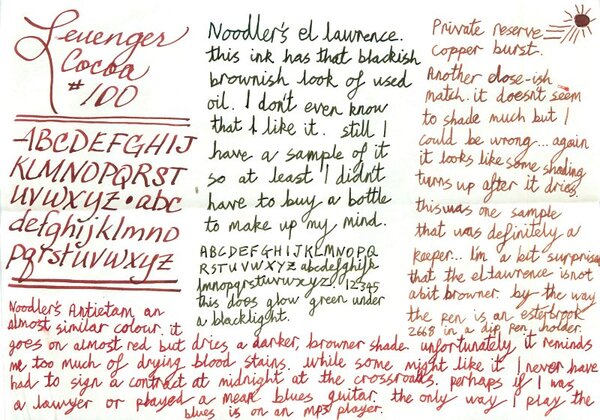 Levenger
Cocoa
#100
ABCDEFGHIJ
KLMNOPQRST
UVWXYZ • abc
defghijklmno
pqrstuvwxyz
Noodler's el lawrence.
this ink has that blackish
brownish look of used
oil. I don't even know
that I like it. still I
have a sample of it
so at least I didn't
have to buy a bottle
to make up my mind.
ABCDEFGHIJKLMNOPQ
RSTUVWXYZ abcdefghijk
lmnopqrstuvwxyz. 12345
this does glow green under
a blacklight.
Private reserve
copper burst.
Another close-ish
match. it doesn't seem
to shade much but I
could be wrong... again
it looks like some shading
turns up after it dries.
this was one sample
that was definitely a
keeper... I'm a bit surprised
that the el lawrence is not
a bit browner. by the way
the pen is an esterbrook
2668 in a dip pen holder.
Noodler's Antietam an
almost similar colour. it
goes on almost red but dries a darker, browner shade. unfortunately it reminds
me too much of drying blood stains. while some might like it I never have
had to sign a contract at midnight at the crossroads. perhaps if I was
a lawyer or played a mean blues guitar. the only way I play the
blues is on an mp3 player.